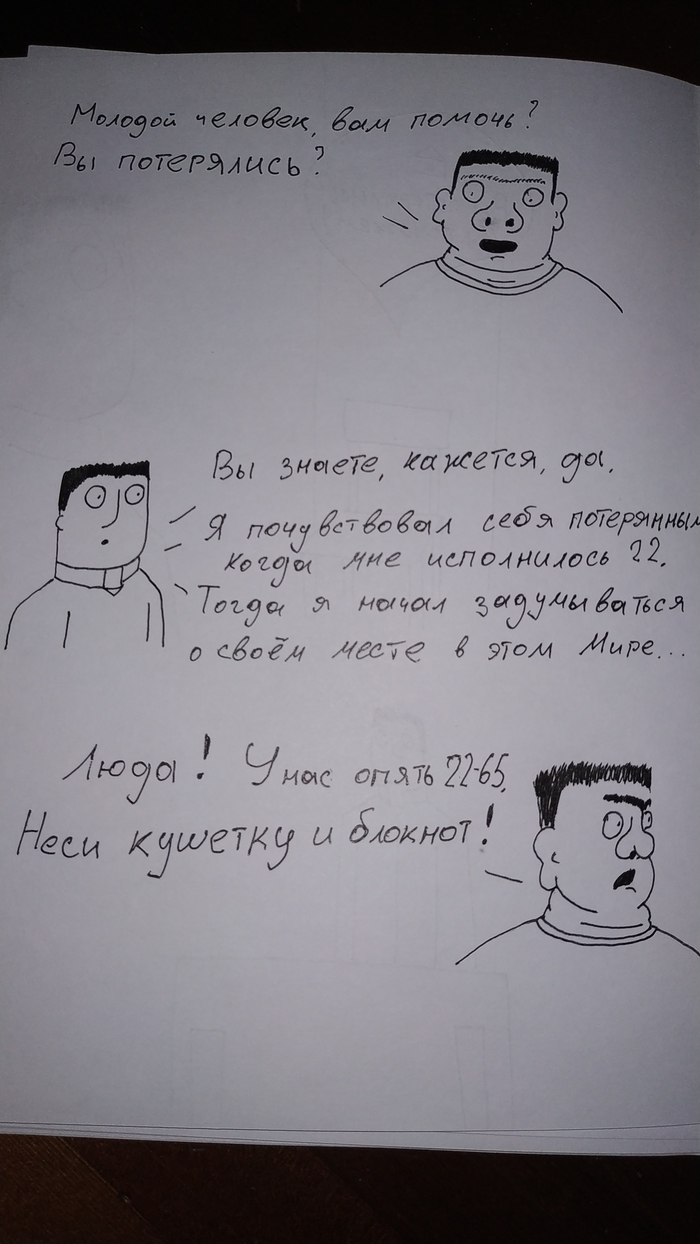 Молодой человек, вам помочь?
Вы потерялись?
Вы знаете, кажется, да.
Я почувствовал себя потерянным
когда мне исполнилось 22.
Тогда я начал задумываться
о своём месте в этом Мире...
Люда! У нас опять 22-65.
Неси кушетку и блокнот!